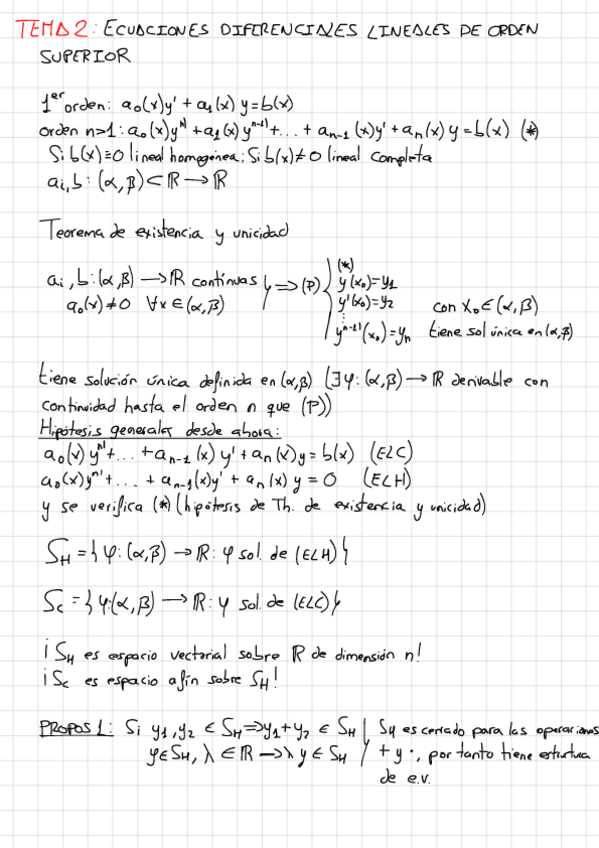 TEMA 2: ECUACIONES DIFERENCIALES LINEALES DE ORDEN
SUPERIOR
1er orden: a₀(x)y' + a₁(x) y = b(x)
orden n>1: a₀(x)yⁿ⁾ + a₁(x) yⁿ⁻¹⁾ + ... + aₙ₋₁(x)y' + aₙ(x) y = b(x) (*)
Si b(x) ≡ 0 lineal homogénea; Si b(x) ≠ 0 lineal completa
aᵢ, b: (α, β) ⊂ ℝ → ℝ
Teorema de existencia y unicidad
aᵢ, b: (α, β) → ℝ continuas
a₀(x) ≠ 0 ∀x ∈ (α, β)
} ⇒ (P) {
(*)
y(x₀) = y₁
y'(x₀) = y₂
⋮
yⁿ⁻¹⁾(x₀) = yₙ
con x₀ ∈ (α, β)
tiene sol única en (α, β)
tiene solución única definida en (α, β) (∃ φ: (α, β) → ℝ derivable con
continuidad hasta el orden n que (P))
Hipótesis generales desde ahora:
a₀(x) yⁿ⁾ + ... + aₙ₋₁(x) y' + aₙ(x) y = b(x) (ELC)
a₀(x) yⁿ⁾ + ... + aₙ₋₁(x) y' + aₙ(x) y = 0 (ELH)
y se verifica (*) (hipótesis de Th. de existencia y unicidad)
S_H = { φ: (α, β) → ℝ: φ sol. de (ELH) }
S_C = { φ: (α, β) → ℝ: φ sol. de (ELC) }
¡ S_H es espacio vectorial sobre ℝ de dimensión n!
¡ S_C es espacio afín sobre S_H!
PROPOS 1: Si y₁, y₂ ∈ S_H ⇒ y₁ + y₂ ∈ S_H } S_H es cerrado para las operaciones
y ∈ S_H, λ ∈ ℝ → λ y ∈ S_H } + y ·, por tanto tiene estructura
de e.v.